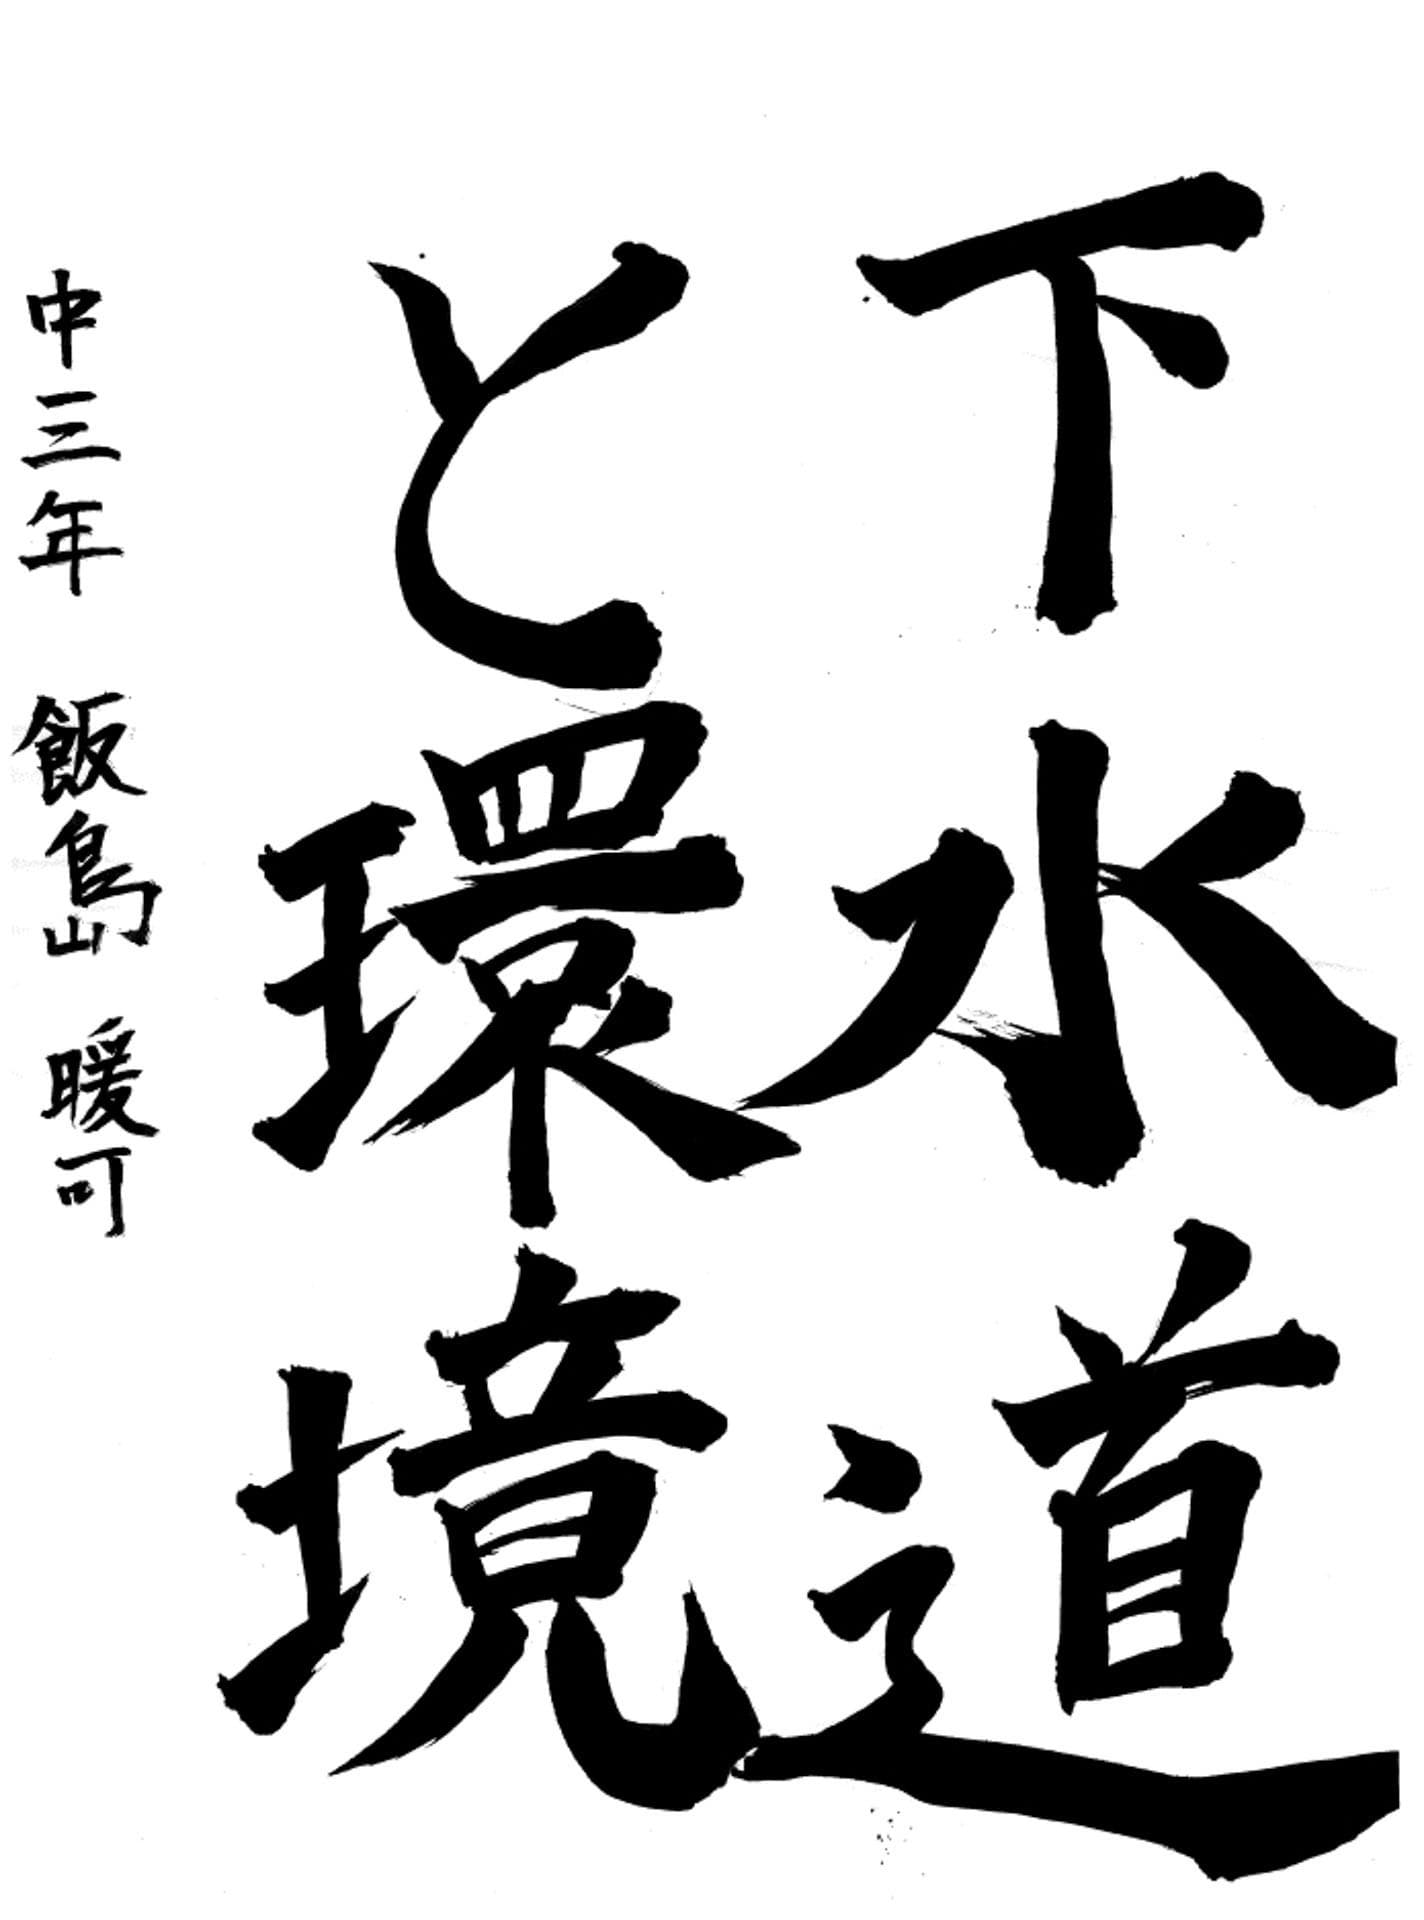 下水道
と環境
中三年 飯島 暖可